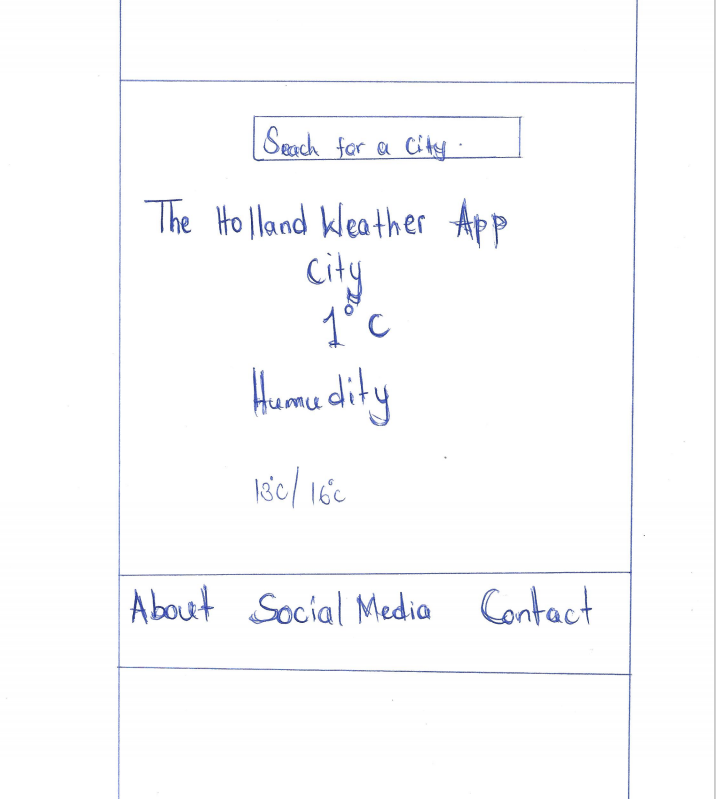 Seach for a City.
The Holland Weather App
City
1°C
Humudity
13°C/ 16°C
About Social Media Contact